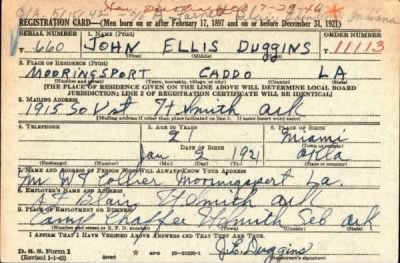 REGISTRATION CARD—(Men born on or after February 17, 1897 and on or before December 31, 1921)
SERIAL NUMBER 1. NAME (Print) ORDER NUMBER
T 660 JOHN ELLIS DUGGINS 11113
(First) (Middle) (Last)
2. PLACE OF RESIDENCE (Print)
MOORINGSPORT CADDO LA
(Number and street) (Town, township, village, or city) (County) (State)
[THE PLACE OF RESIDENCE GIVEN ON THE LINE ABOVE WILL DETERMINE LOCAL BOARD
JURISDICTION; LINE 2 OF REGISTRATION CERTIFICATE WILL BE IDENTICAL]
3. MAILING ADDRESS
1915 So V st Ft Smith Ark
[Mailing address if other than place indicated on line 2. If same insert word same]
4. TELEPHONE 5. AGE IN YEARS 6. PLACE OF BIRTH
21 Miami
DATE OF BIRTH (Town or county)
Jan 2 1921 Okla
(Exchange) (Number) (Mo.) (Day) (Yr.) (State or country)
7. NAME AND ADDRESS OF PERSON WHO WILL ALWAYS KNOW YOUR ADDRESS
Collier Mooringsport La.
8. EMPLOYER'S NAME AND ADDRESS
Blair Ft Smith Ark
9. PLACE OF EMPLOYMENT OR BUSINESS
Camp Chaffee Ft Smith Seb Ark
(Number and street or R. F. D. number) (Town) (County) (State)
I AFFIRM THAT I HAVE VERIFIED ABOVE ANSWERS AND THAT THEY ARE TRUE.
D. S. S. Form 1
(Revised 1-1-42) (over)
J. E. Duggins
(Registrant's signature)